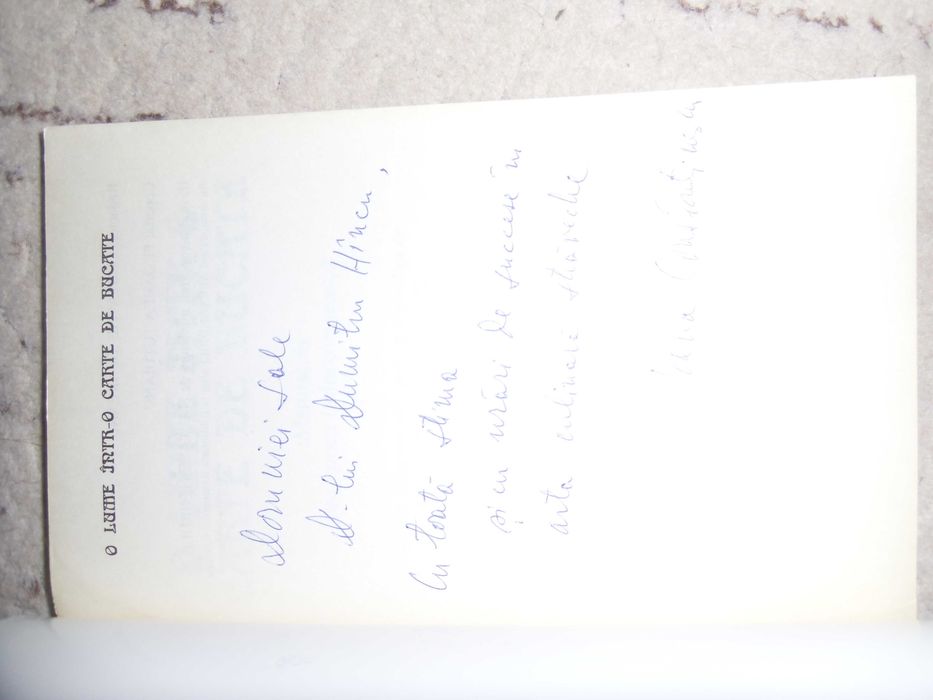 O LUME ÎNTR-O CARTE DE BUCATE
Domniei sale
D-lui Dumitru Hîncu,
Cu toată stima
și cu urări de succese în
arta culinară străveche
Ioana Constantinescu